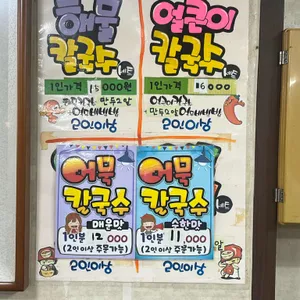 해물
칼국수
세트
1인가격 15000원
만두2알
2인이상
얼큰이
칼국수
세트
1인가격 16000
만두2알
2인이상
어묵
칼국수
매운맛
1인분 12000
(2인이상 주문가능)
어묵
칼국수
순한맛
1인분 11,000
(2인이상 주문가능)
2인이상
2인이상